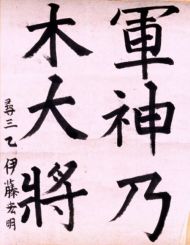 軍神乃
木大將
尋三乙 伊藤宏明